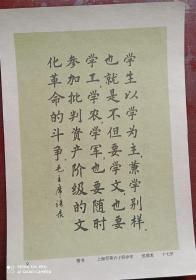 学生以学为主，兼学别样，
也就是不但要学文，也要
学工、学农、学军，也要随时
参加批判资产阶级的文
化革命的斗争。毛主席语录
楷书 上海市第六十四中学 十七岁